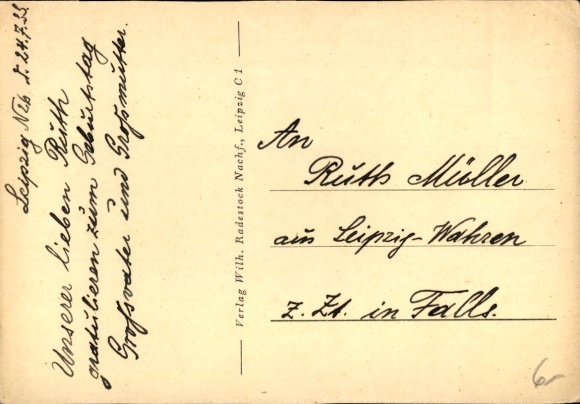 Leipzig N26, d. 24.7.33
Unserer lieben Ruth
gratulieren zum Geburtstag
Großvater und Großmutter.
Verlag Wilh. Radestock Nachf., Leipzig C 1
An
Ruth Müller
aus Leipzig-Wahren
z. Zt. in Falls.
6-